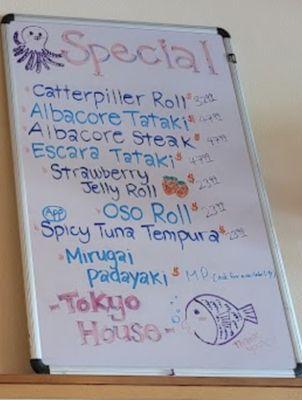 Special
Catterpiller Roll $
Albacore Tataki $ 47.99
Albacore Steak $ 47.99
Escara Tataki $ 47.99
Strawberry
Jelly Roll $ 23.99
APP Oso Roll $ 23.99
Spicy Tuna Tempura $ 23.99
Mirugai
Padayaki $ M.P. (Ask for availability)
-Tokyo
House-
Thank
you